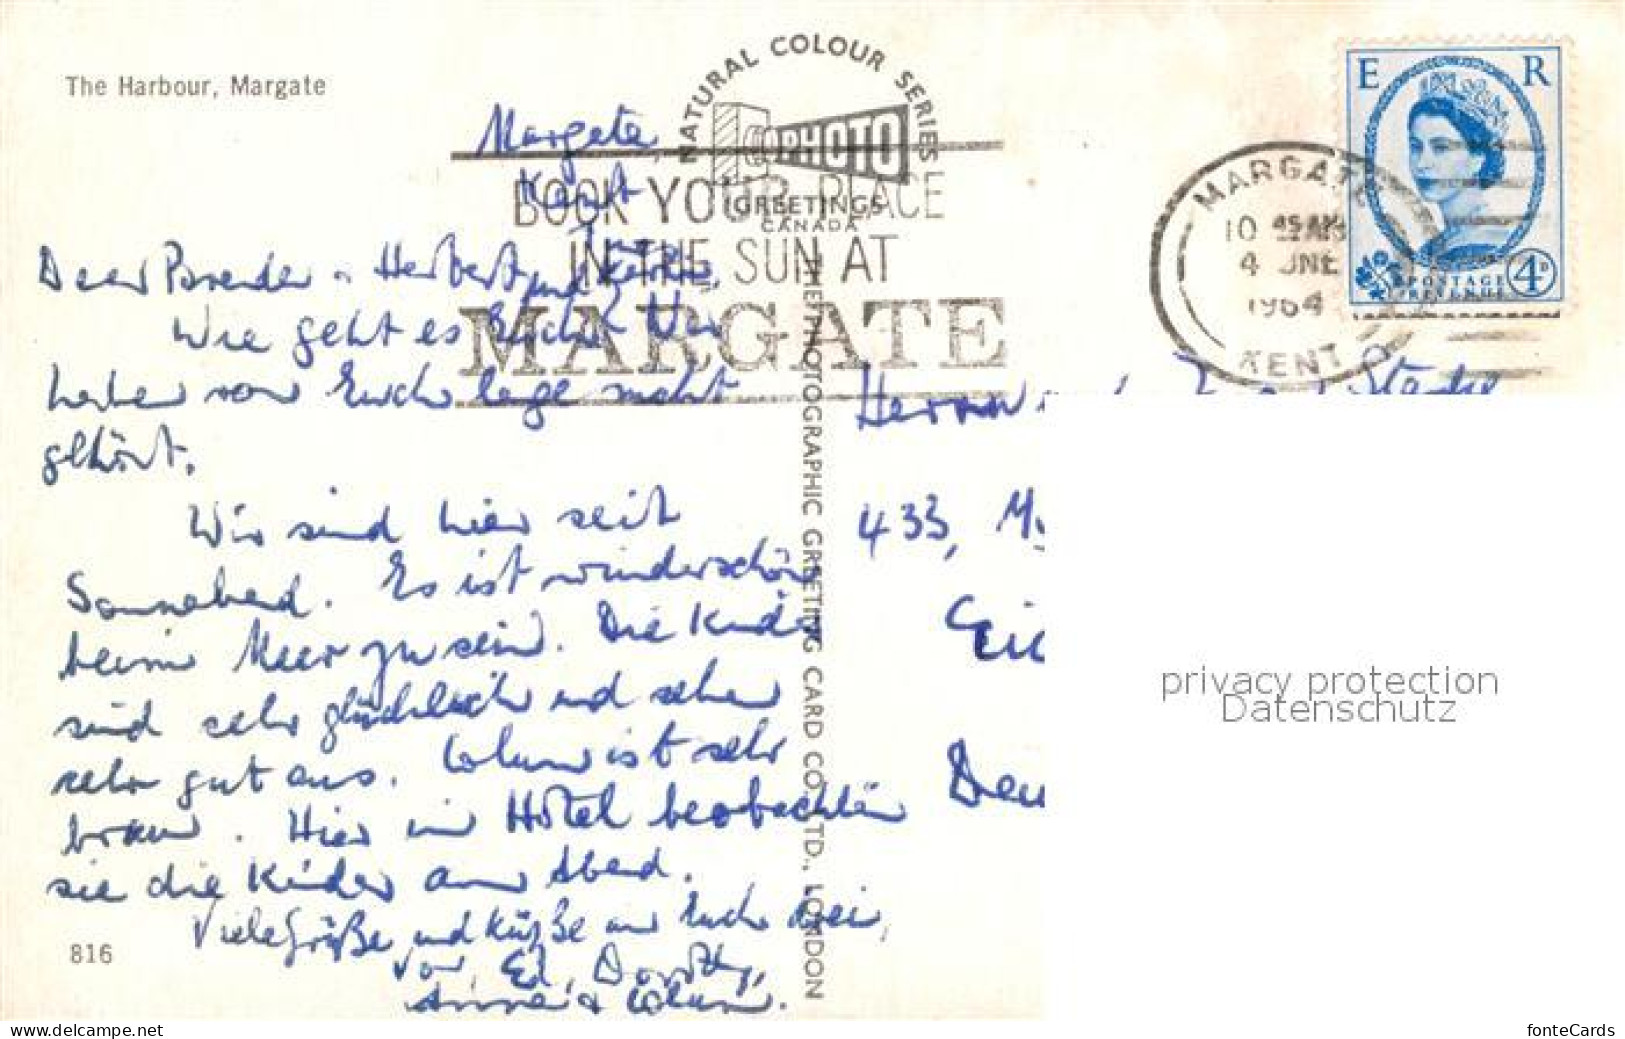 The Harbour, Margate
NATURAL COLOUR SERIES
PHOTO
GREETINGS
CANADA
BOOK YOUR PLACE
IN THE SUN AT
MARGATE
MARGATE
10 45 AM
4 JNE
1964
KENT
E R
POSTAGE
REVENUE
4D
Margate,
Kent
Dear Brender - Herbert und
Wie geht es Euch? Wir
haben von Euch lange nicht
gehört.
Wir sind hier seit
Sonnabend. Es ist wunderschön
beim Meer zu sein. Die Kinder
sind sehr glücklich und sehen
sehr gut aus. Colum ist sehr
braun. Hier im Hotel beobachten
sie die Kinder am Abend.
Viele Grüße und Küße an Euch drei,
von Ed, Dorothy,
Anne & Colum.
THE PHOTOGRAPHIC GREETING CARD CO. LTD., LONDON
433,
816
privacy protection
Datenschutz
www.ak-ansichtskarten.de
fonteCards